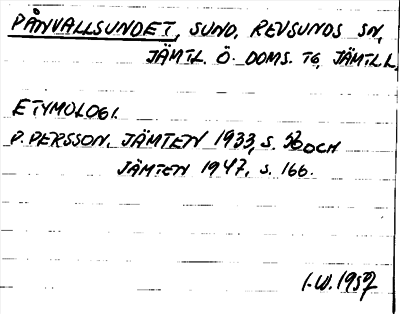 PÅNVALLSUNDET, SUND, REVSUNDS SN,
JÄMTL. Ö. DOMS. TG, JÄMTL L.
ETYMOLOGI.
P. PERSSON, JÄMTEN 1933, S. 56 OCH
JÄMTEN 1947, S. 166.
I.W. 1957